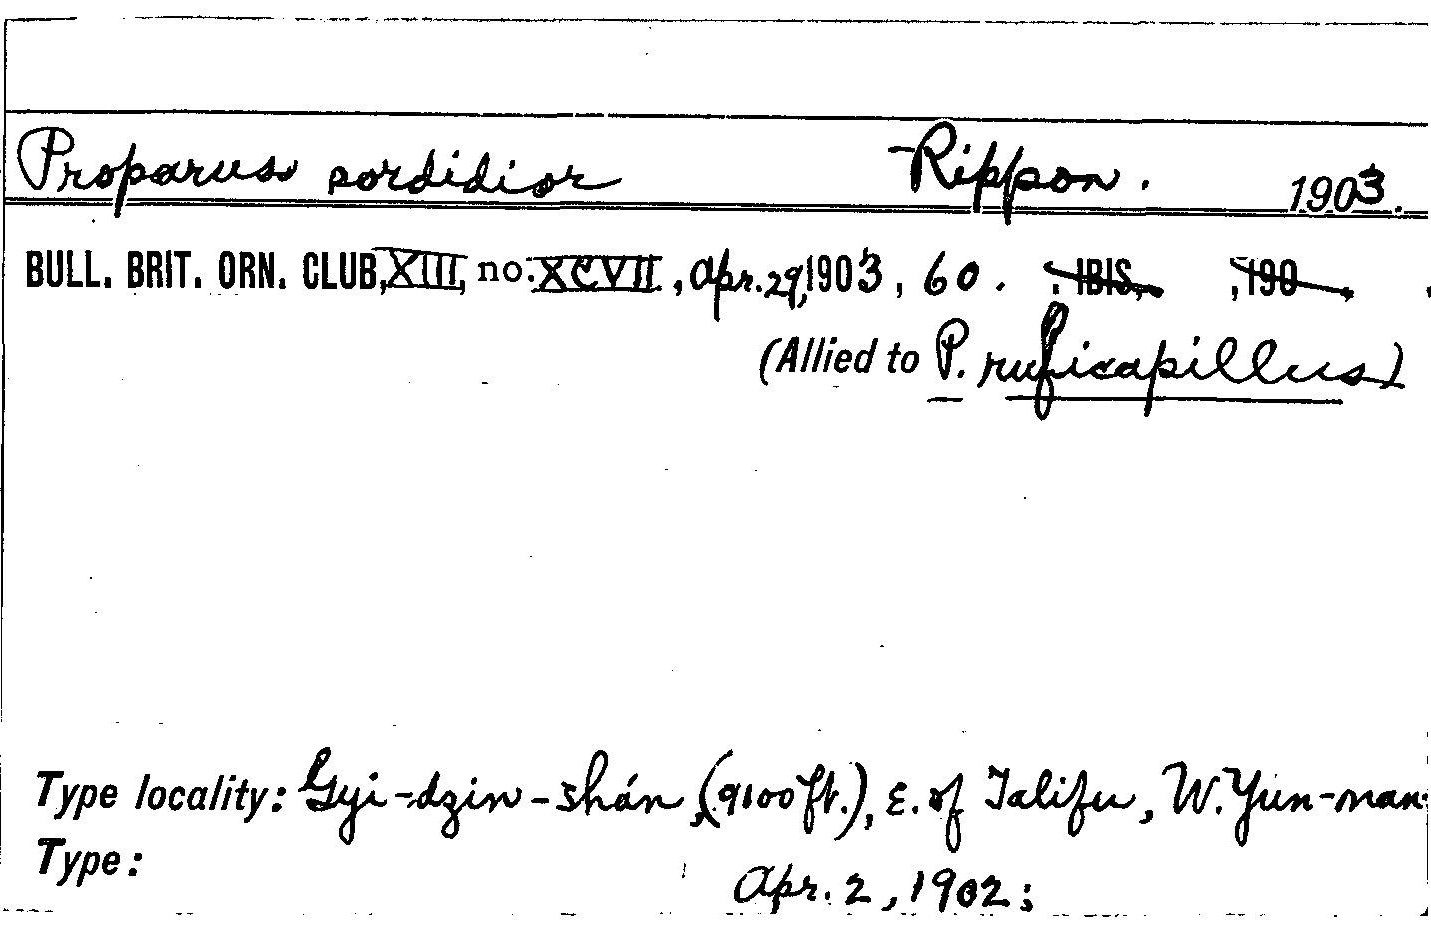 Proparus sordidior Rippon. 1903.
BULL. BRIT. ORN. CLUB, XIII, no. XCVII, Apr. 29, 1903, 60. . IBIS, , 190 , .
(Allied to P. ruficapillus)
Type locality: Gyi-dzin-shán, (9100 ft.), E. of Talifu, W. Yun-nan.
Type: Apr. 2, 1902;